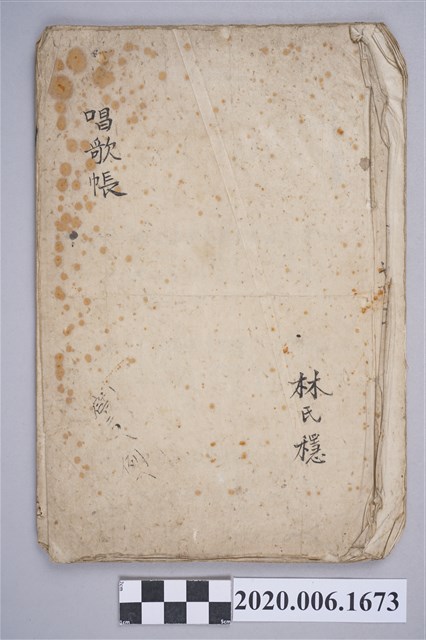 唱歌帳
林氏穩
2020.006.1673